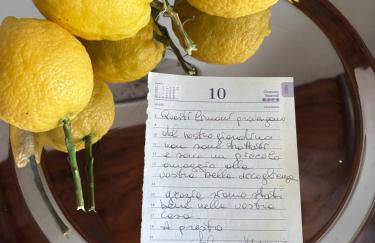 10
Questi limoni provengono
dal vostro giardino
non sono trattati
e sono un piccolo
omaggio alla
vostra bella accoglienza
grazie siamo stati
bene nella vostra
casa
A presto